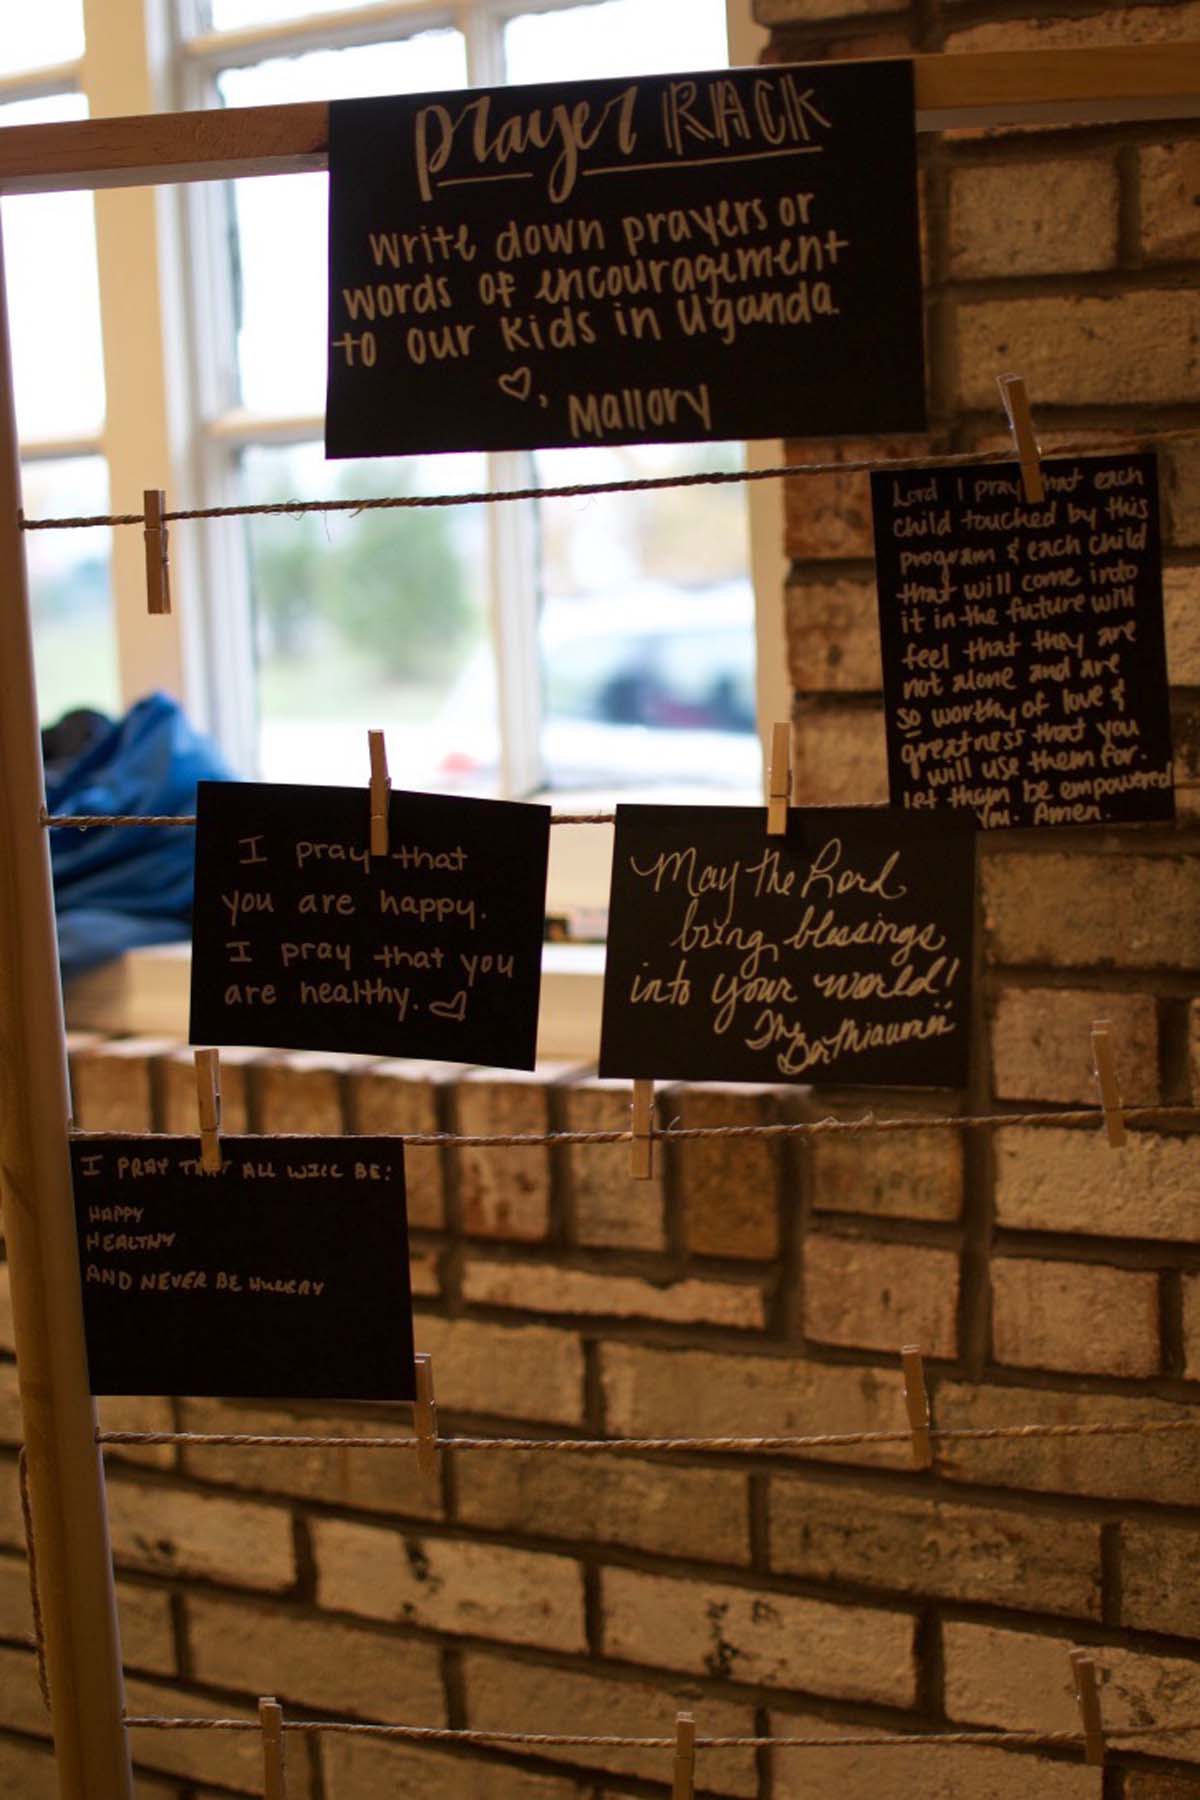 prayer RACK
write down prayers or
words of encouragement
to our kids in Uganda.
♡, Mallory
Lord I pray that each
child touched by this
program & each child
that will come into
it in the future will
feel that they are
not alone and are
so worthy of love &
greatness that you
will use them for.
let them be empowered
You. Amen.
I pray that
you are happy.
I pray that you
are healthy. ♡
May the Lord
bring blessings
into your world!
The
I PRAY THAT ALL WILL BE:
HAPPY
HEALTHY
AND NEVER BE HUNGRY